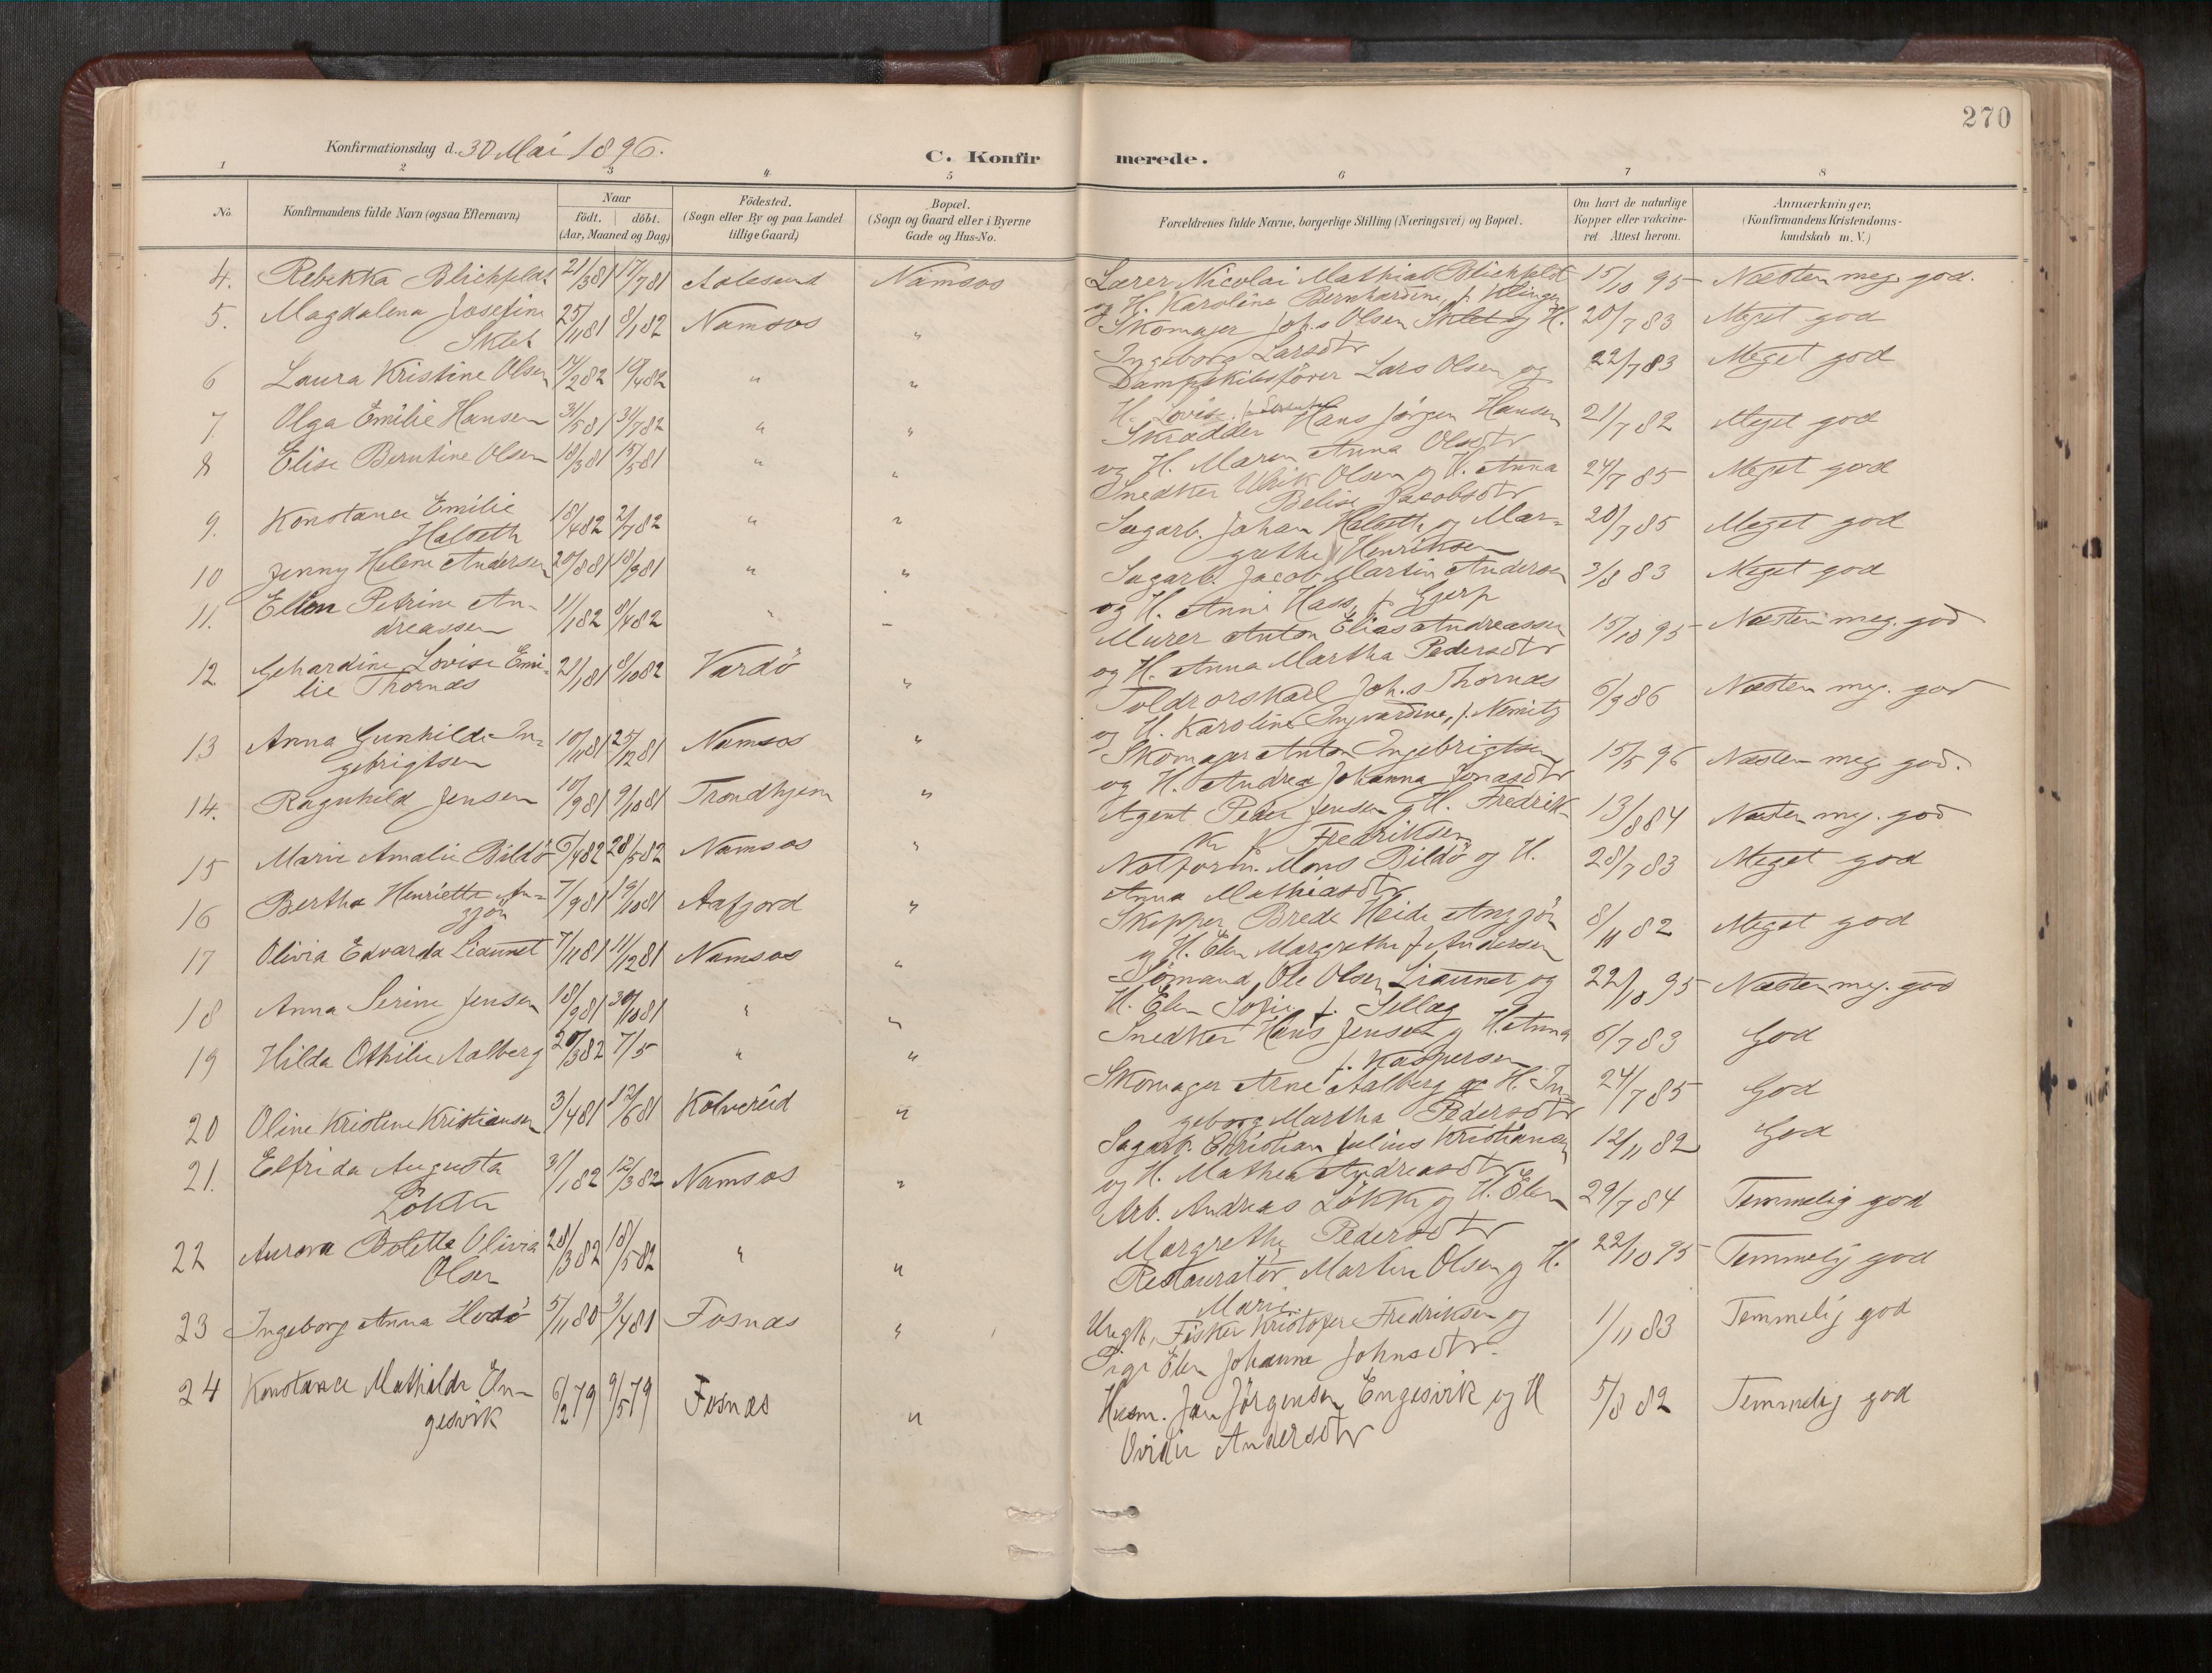 270
Konfirmationsdag d. 30 Mai 1896.
C. Konfirmerede.
1 2 3 4 5 6 7 8
No. Konfirmandens fulde Navn (ogsaa Efternavn) Naar födt. döbt. (Aar, Maaned og Dag) Födested. (Sogn eller By og paa Landet tillige Gaard) Bopæl. (Sogn og Gaard eller i Byerne Gade og Hus-No. Forældrenes fulde Navne, borgerlige Stilling (Næringsvei) og Bopæl. Om havt de naturlige Kopper eller vakcineret. Attest herom. Anmærkninger. (Konfirmandens Kristendomskundskab m. V.)
4. Rebekka Blichfeldt 21/3 81 17/7 81 Aalesund Namsos Lærer Nicolai Mathias Blichfeldt 15/10 95 Næsten meg. god.
og H. Karoline Bernhardine, f. Klingen
5. Magdalena Josefine 25/11 81 8/1 82 Namsos " Skomager Joh.s Olsen Sklet og H. 20/7 83 Meget god
Sklet Ingeborg Larsdtr
6 Laura Kristine Olsen 14/2 82 10/4 82 " " Dampskibsfører Lars Olsen og 22/7 83 Meget god
H. Lovise
7. Olga Emilie Hansen 31/5 81 31/7 82 " " Skrædder Hans Jørgen Hansen 21/7 82 Meget god
og H. Maren Anna Olsdtr
8 Elise Berntine Olsen 18/3 81 15/5 81 " " Snedker Ulrik Olsen og H. Anna 24/7 85 Meget god
Belise Jacobsdtr
9. Konstance Emilie 18/4 82 2/7 82 " " Sagarb. Johan Halseth og Mar- 20/7 85 Meget god
Halseth grethe Henriksen
10 Jenny Helene Andersen 20/8 81 18/9 81 " " Sagarb. Jacob Martin Andersen 3/8 83 Meget god
og H. Anne Hass, f. Gjerp
11. Ellen Petrine An- 11/1 82 8/4 82 " " Murer Anton Elias Andreassen 15/10 95 Næsten meg. god
dreassen og H. Anna Martha Pedersdtr
12 Gehardine Lovise Emi- 21/1 81 8/10 82 Vardö " Toldrorskarl Joh.s Thornæs 6/9 86 Næsten meg. god
lie Thornæs og H. Karoline Ingvardine, f. Nemitz
13 Anna Gunhilde In- 10/11 81 25/12 81 Namsos " Skomager Anton Ingebrigtsen 15/5 96 Næsten meg. god.
gebrigtsen og H. Andrea Johanna Jonasdtr
14. Ragnhild Jensen 10/9 81 9/10 81 Trondhjem " Agent Peder Jensen og H. Fredrik- 13/8 84 Næsten meg. god
ke f. Fredriksen
15 Marie Amalie Bildö 6/4 82 28/5 82 Namsos " Notform. Mons Bildö og H. 28/7 83 Meget god
Anna Mathiasdtr
16 Bertha Henriette An- 7/9 81 19/10 81 Aafjord " Skipper Brede Heide Anzjön 8/11 82 Meget god
zjön og H. Elen Margrethe f. Andersen
17 Olivia Edvarda Liaunet 7/11 81 11/12 81 Namsos " Sömand Ole Olsen Liaunet og 22/10 95 Næsten meg. god
H. Elen Sofie f. Sellæg
18 Anna Serine Jensen 18/9 81 30/10 81 " " Snedker Hans Jensen og H. Anna 6/7 83 God
f. Kaspersen
19 Hilda Othilie Aalberg 20/3 82 7/5 " " Skomager Arne Aalberg og H. In- 24/7 85 God
geborg Martha Pedersdtr
20 Oline Kristine Kristiansen 3/4 81 12/6 81 Kolvereid " Sagarb. Christian Julius Kristiansen 12/11 82 God
og H. Mathea Andreasdtr
21. Elfrida Augusta 31/1 82 12/3 82 Namsos " Arb. Andreas Lökke og H. Elen 29/7 84 Temmelig god
Lökke Margrethe Pedersdtr
22 Aurora Boletta Olivia 28/3 82 18/5 82 " " Restauratör Martin Olsen og H. 22/10 95 Temmelig god
Olsen Marie
23 Ingeborg Anna Hodö 5/11 80 3/4 81 Fosnæs " Ungk. Fisker Kristofer Fredriksen og 1/11 83 Temmelig god
Pige Elen Johanna Johnsdtr.
24 Konstance Mathilde En- 6/2 79 9/5 79 Fosnæs " Husm. Jan Jörgensen Engesvik og H 5/8 82 Temmelig god
gesvik Ovidie Andersdtr